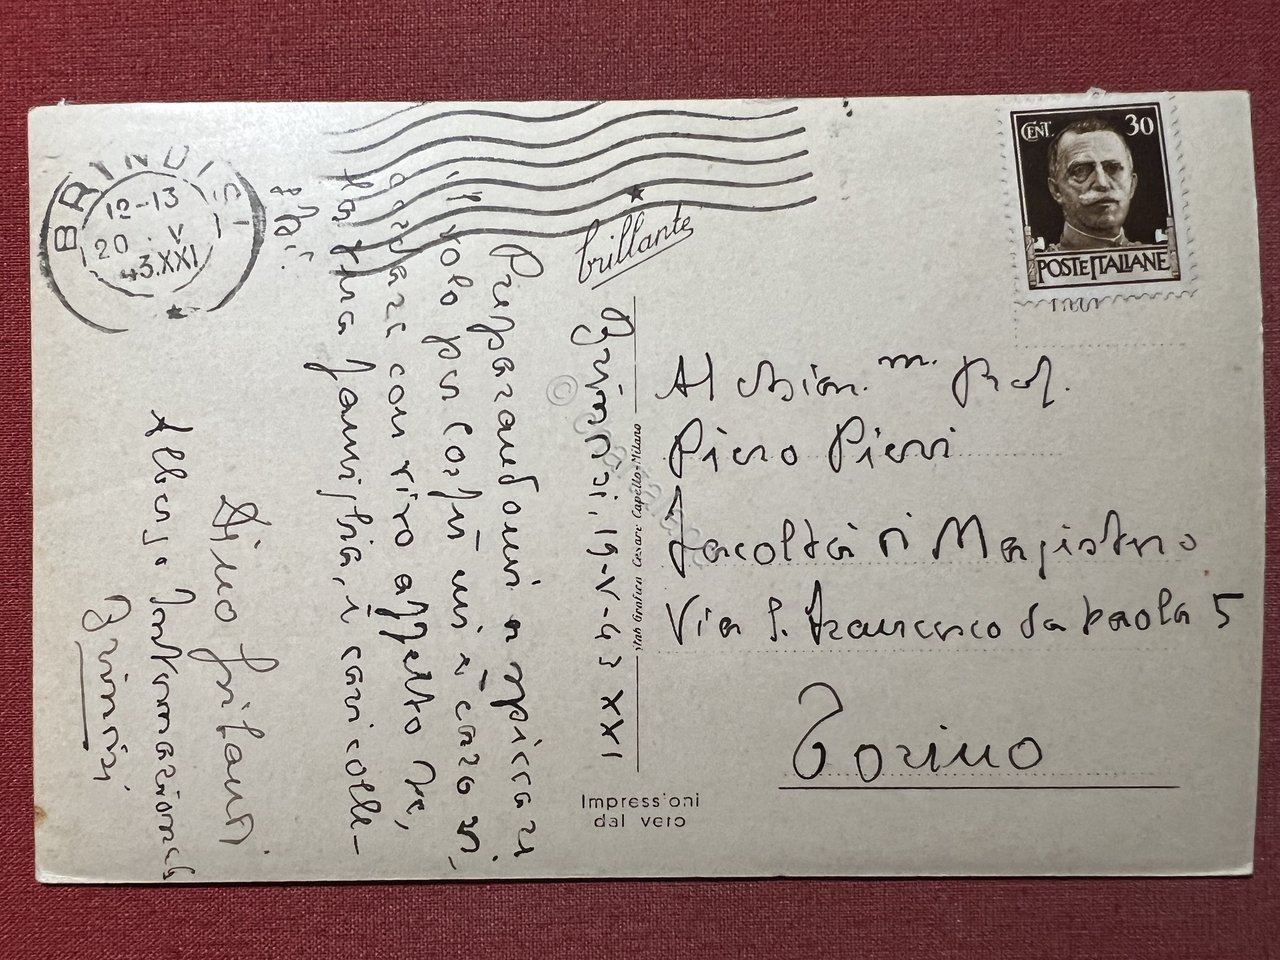 BRINDISI
12-13
20 . V
43.XXI
CENT. 30
POSTE ITALIANE
brillante
Brindisi, 19-V-43 XXI
Preparandomi a spiccare
il volo per Corfù mi è caro ri,
cordare con vivo affetto Lei,
la sua famiglia, i cari colle-
ghi.
Gino
Albergo Internazionale
Brindisi
Al Chiar.m. Prof.
Piero Pieri
Facoltà di Magistero
Via S. Francesco da Paola 5
Torino
Stab Grafico Cesare Capello-Milano
Impressioni
dal vero
©